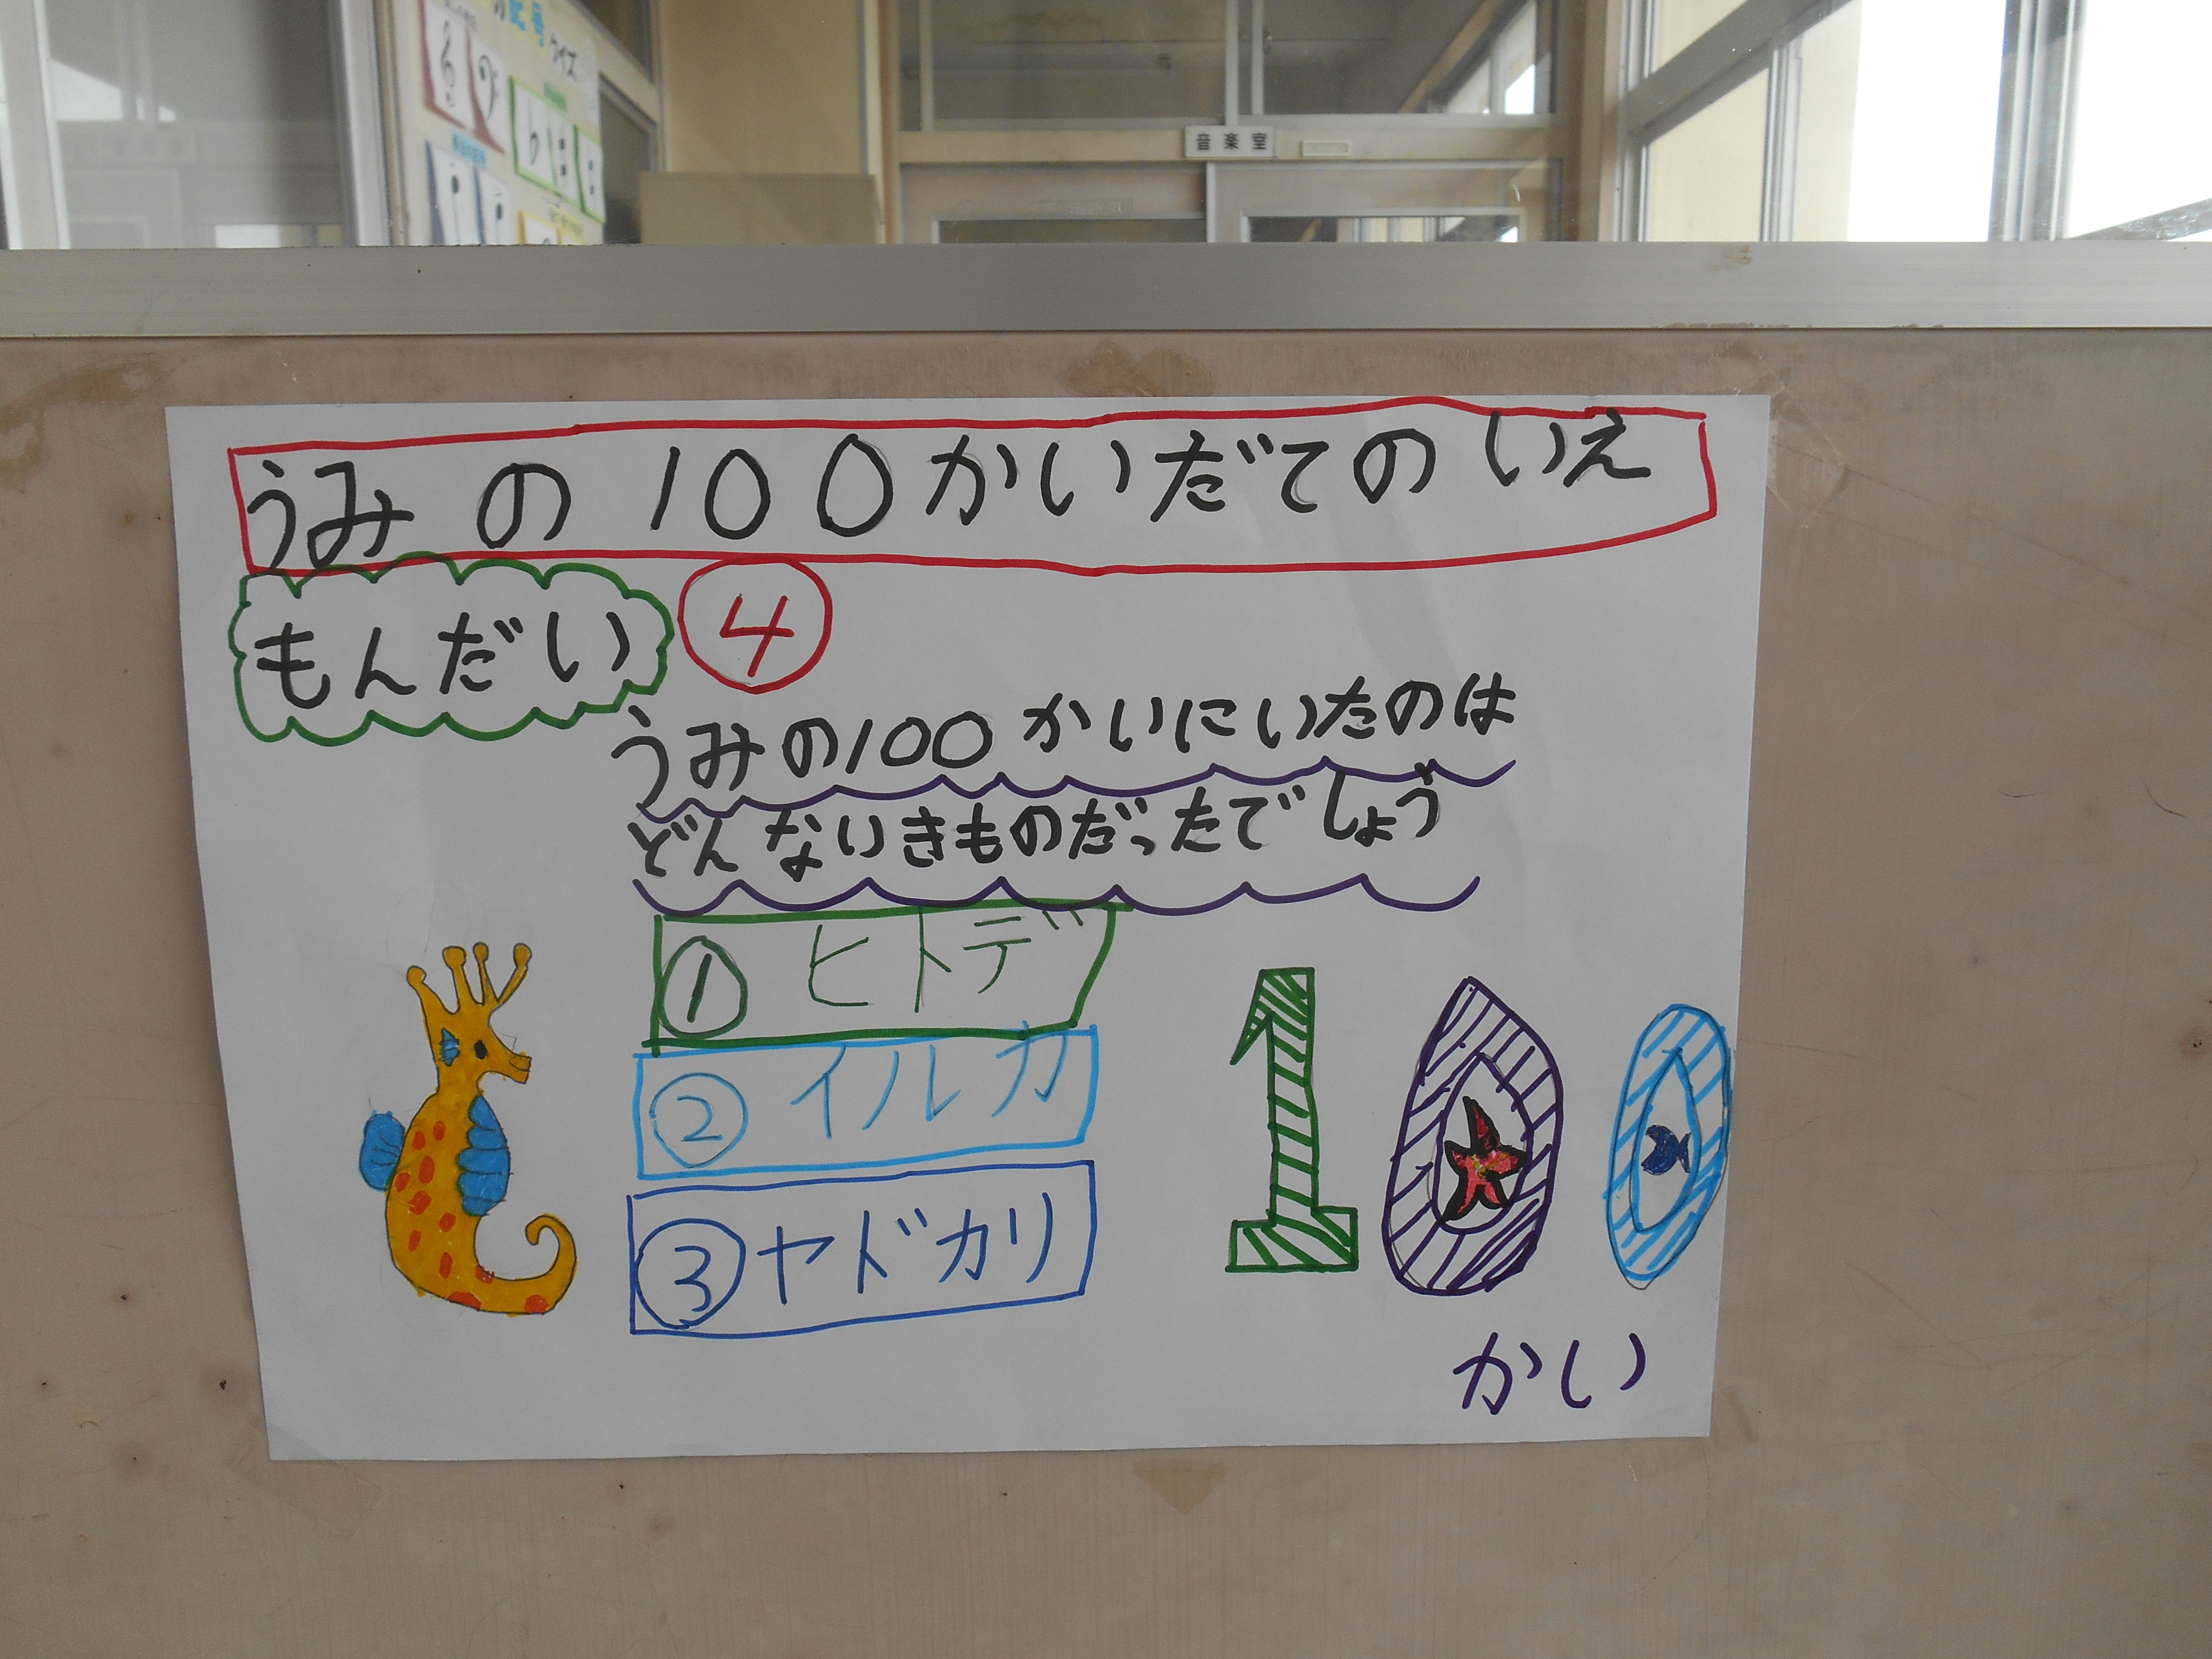 クイズ
音楽室
うみの100かいだてのいえ
もんだい ④
うみの100かいにいたのは
どんないきものだったでしょう
① ヒトデ
② イルカ
③ ヤドカリ
100
かい